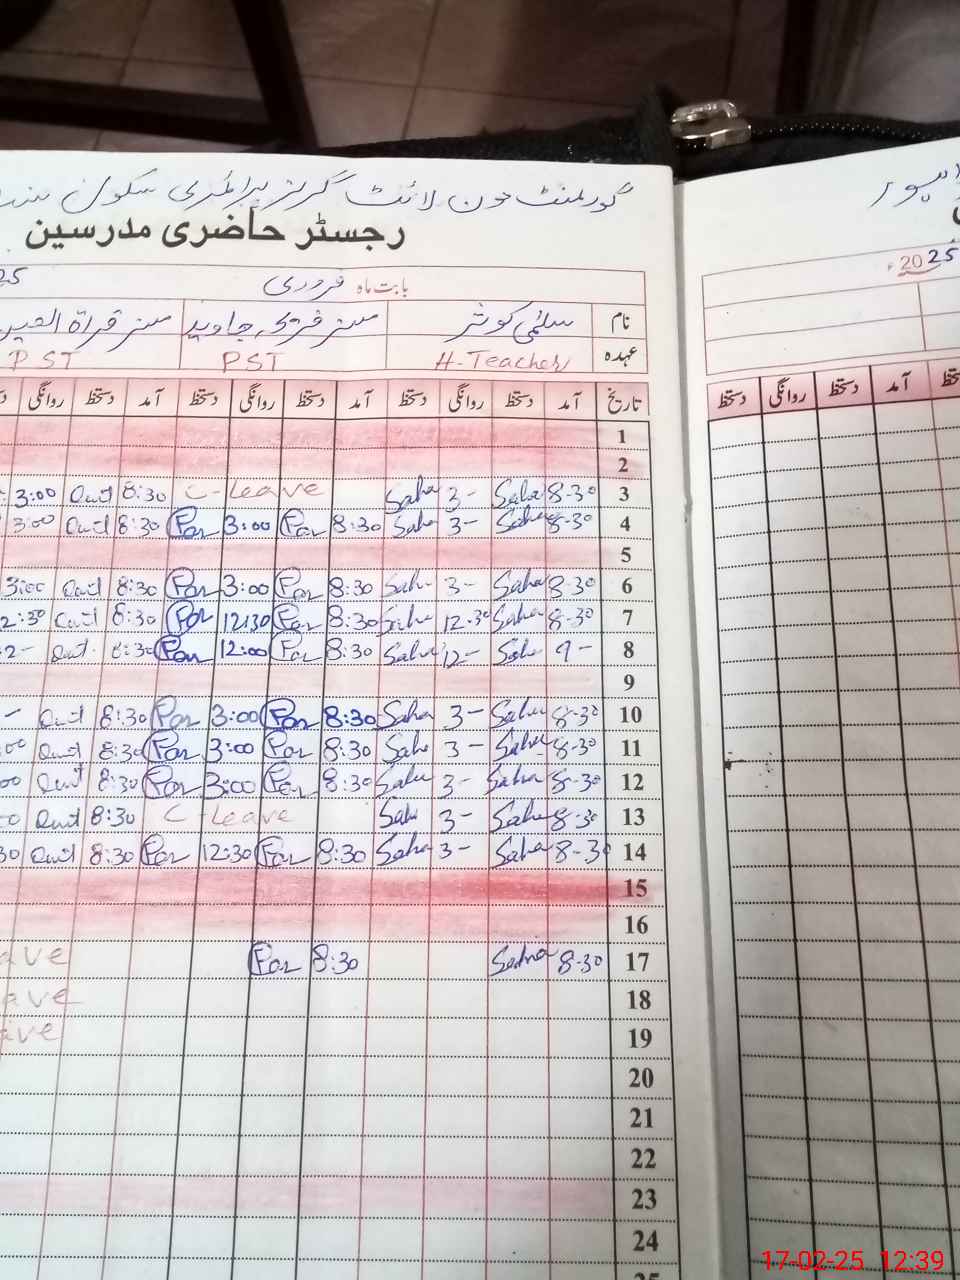 گورنمنٹ مون لائٹ گرلز پرائمری سکول
رجسٹر حاضری مدرسین
بابت ماہ فروری 25
2025ء
نام سلمی کوثر مسز فرح جاوید مسز قراۃ العین
عہدہ H-Teacher PST PST
تاریخ آمد دستخط روانگی دستخط آمد دستخط روانگی دستخط آمد دستخط روانگی
آمد دستخط روانگی دستخط
1
2
3 8-30 Saha 3- Saha C-Leave 8:30 Quit 3:00
4 8-30 Saha 3- Saha 8:30 Par 3:00 Par 8:30 Quit 3:00
5
6 8-30 Saha 3- Saha 8:30 Par 3:00 Par 8:30 Quit 3:00
7 8-30 Saha 12-30 Saha 8:30 Par 12:30 Par 8:30 Quit 2:30
8 9- Saha 12- Saha 8:30 Par 12:00 Par 8:30 Quit 2-
9
10 8-30 Saha 3- Saha 8:30 Par 3:00 Par 8:30 Quit -
11 8-30 Saha 3- Saha 8:30 Par 3:00 Par 8:30 Quit 00
12 8-30 Saha 3- Saha 8:30 Par 3:00 Par 8:30 Quit 00
13 8-30 Saha 3- Saha C-Leave 8:30 Quit 00
14 8-30 Saha 3- Saha 8:30 Par 12:30 Par 8:30 Quit 30
15
16
17 8-30 Saha 8:30 Par ave
18 ave
19 ave
20
21
22
23
24
25
17-02-25 12:39